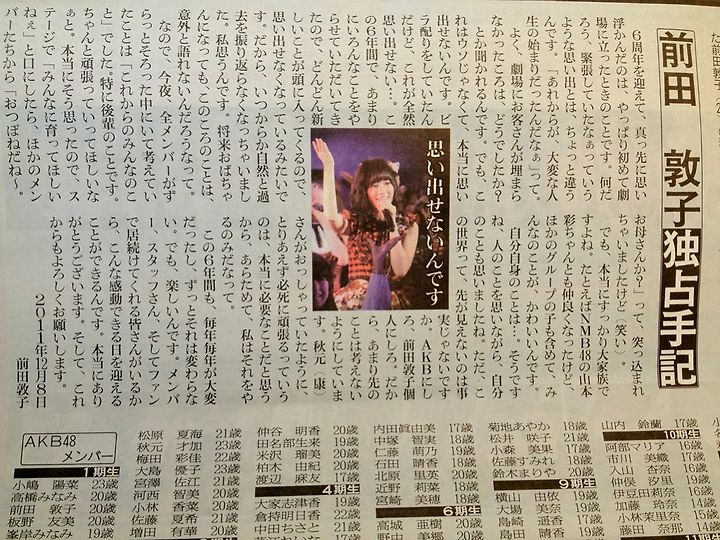 前田 敦子独占手記
6周年を迎えて、真っ先に思い
浮かんだのは、やっぱり初めて劇
場に立ったときのことです。何だ
ろう、緊張していたなぁっていう
ような思い出とは、ちょっと違う
んです。「あれからが、大変な人
生の始まりだったんだなぁ」って。
よく、劇場にお客さんが埋まら
なかったころは、どうでしたか？
とか聞かれるんです。でも、こ
れはウソじゃなくて、本当に思い
出せないんです。ビ
ラ配りをしていたん
だけど、これが全然
思い出せない…。こ
の6年間で、あまり
にいろんなことをや
らせていただいてき
たので、どんどん新
しいことが頭に入ってくるので、
思い出せなくなっているみたいで
す。だから、いつからか自然と過
去を振り返らなくなっちゃいまし
た。私思うんです。将来おばちゃ
んになっても、このころのことは
意外と語れないんだろうなって。
なので、今夜、全メンバーがず
らっとそろった中にいて考えてい
たことは「これからのみんなのこ
と」でした。特に後輩のことです。
ちゃんと頑張っていってほしいな
ぁと。本当にそう思ったので、ス
テージで「みんなに育ってほしい
ねぇ」と口にしたら、ほかのメン
バーたちから「おつぼねだね〜。
思い出せないんです
お母さんか？」って、突っ込まれ
ちゃいましたけど（笑い）。
でも、本当にすっかり大家族で
すよね。たとえばNMB48の山本
彩ちゃんとも仲良くなったけど、
ほかのグループの子も含めて、み
んなのことが、かわいいんです。
自分自身のことは、そうです
ね、人のことを思いながら、自分
のことも思いましたね。ただ、こ
の世界って、先が見えないのは事
実じゃないです
か。AKBにし
ろ、前田敦子個
人にしろ。だか
ら、あまり先の
ことは考えない
ようにしていま
す。秋元（康）
さんがおっしゃっていたように、
とりあえず必死に頑張るっていう
のは、本当に必要なことだと思う
から、あらためて、私はそれをや
るのみだなって。
この6年間も、毎年毎年が大変
だったし、ずっとそれは変わらな
い。でも、楽しいんです。メンバ
ー、スタッフさん、そしてファン
で居続けてくれる皆さんがいるか
ら、こんな感動できる日を迎える
ことができるんです。本当にあり
がとうございます。そして、これ
からもよろしくお願いします。
2011年12月8日
前田敦子
AKB48
メンバー
1期生
小嶋 陽菜 23歳
高橋みなみ 20歳
前田 敦子 20歳
板野 友美 20歳
峯岸みなみ 19歳
松原 夏海 21歳
秋元 才加 23歳
梅田 彩佳 22歳
大島 優子 23歳
宮澤 佐江 21歳
河西 智美 20歳
小林 香菜 20歳
佐藤 夏希 21歳
増田 有華 20歳
仲谷 明香 20歳
田名部生来 19歳
米沢 瑠美 20歳
柏木 由紀 20歳
渡辺 麻友 17歳
4期生
大家志津香 19歳
倉持明日香 22歳
内田眞由美 17歳
中塚 智実 18歳
仁藤 萌乃 19歳
石田 晴香 18歳
北原 里英 20歳
近野 莉菜 18歳
宮崎 美穂 18歳
6期生
高城 亜樹 20歳
菊地あやか 18歳
松井 咲子 21歳
小森 美果 17歳
佐藤すみれ 18歳
鈴木まりや 20歳
9期生
横山 由依 19歳
大場 美奈 19歳
島崎 遥香 17歳
山内 鈴蘭 17歳
10期生
阿部マリア 16歳
市川 美織 17歳
入山 杏奈 16歳
仲俣 汐里 19歳
伊豆田莉奈 16歳
加藤 玲奈 14歳
小林茉里奈 15歳
藤田 奈那 14歳